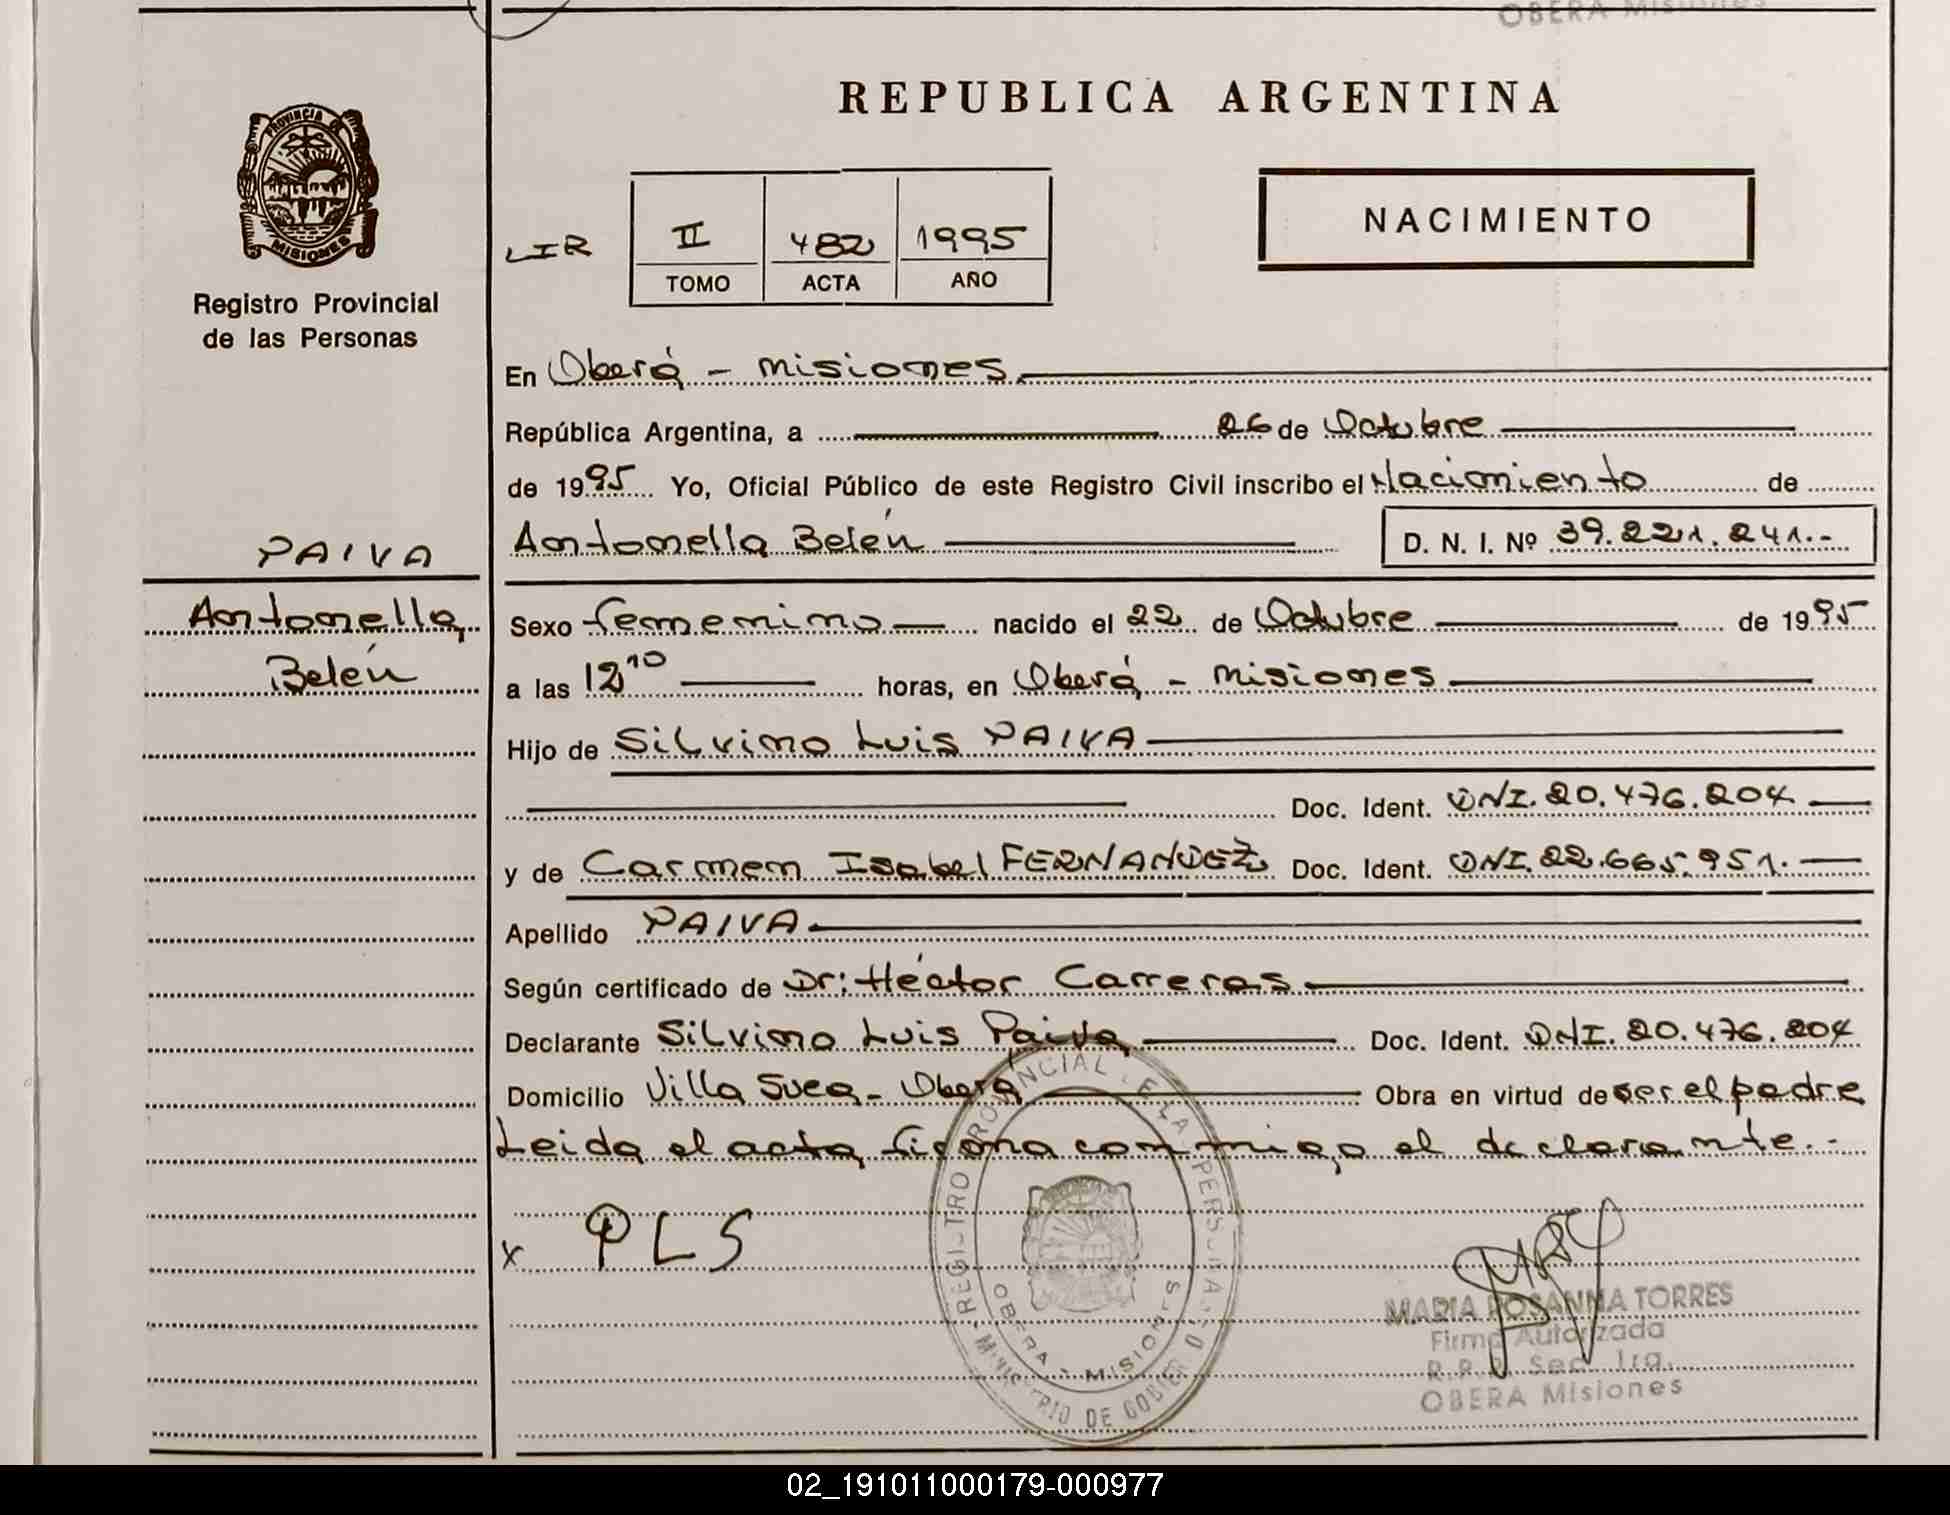 OBERA Misiones
REPUBLICA ARGENTINA
PROVINCIA DE
MISIONES
Registro Provincial
de las Personas
LIR
II 482 1995
TOMO ACTA AÑO
NACIMIENTO
En Oberá - Misiones
República Argentina, a 26 de Octubre
de 1995 Yo, Oficial Público de este Registro Civil inscribo el Nacimiento de
Antonella Belén D. N. I. Nº 39.221.241.-
PAIVA
Antonella
Belén
Sexo femenino nacido el 22 de Octubre de 1995
a las 12 10 horas, en Oberá - Misiones
Hijo de Silvino Luis PAIVA
Doc. Ident. DNI. 20.476.204
y de Carmen Isabel FERNANDEZ Doc. Ident. DNI. 22.665.951.
Apellido PAIVA
Según certificado de Dr: Héctor Carreras
Declarante Silvino Luis Paiva Doc. Ident. DNI. 20.476.204
Domicilio Villa Svea - Oberá Obra en virtud de ser el padre
Leida el acta firma conmigo el declarante.-
x PLS
REGISTRO PROVINCIAL DE LAS PERSONAS
MINISTERIO DE GOBIERNO
OBERA - MISIONES
MARIA ROSANNA TORRES
Firma Autorizada
R.R.P. Sec. 1ra.
OBERA Misiones
02_191011000179-000977